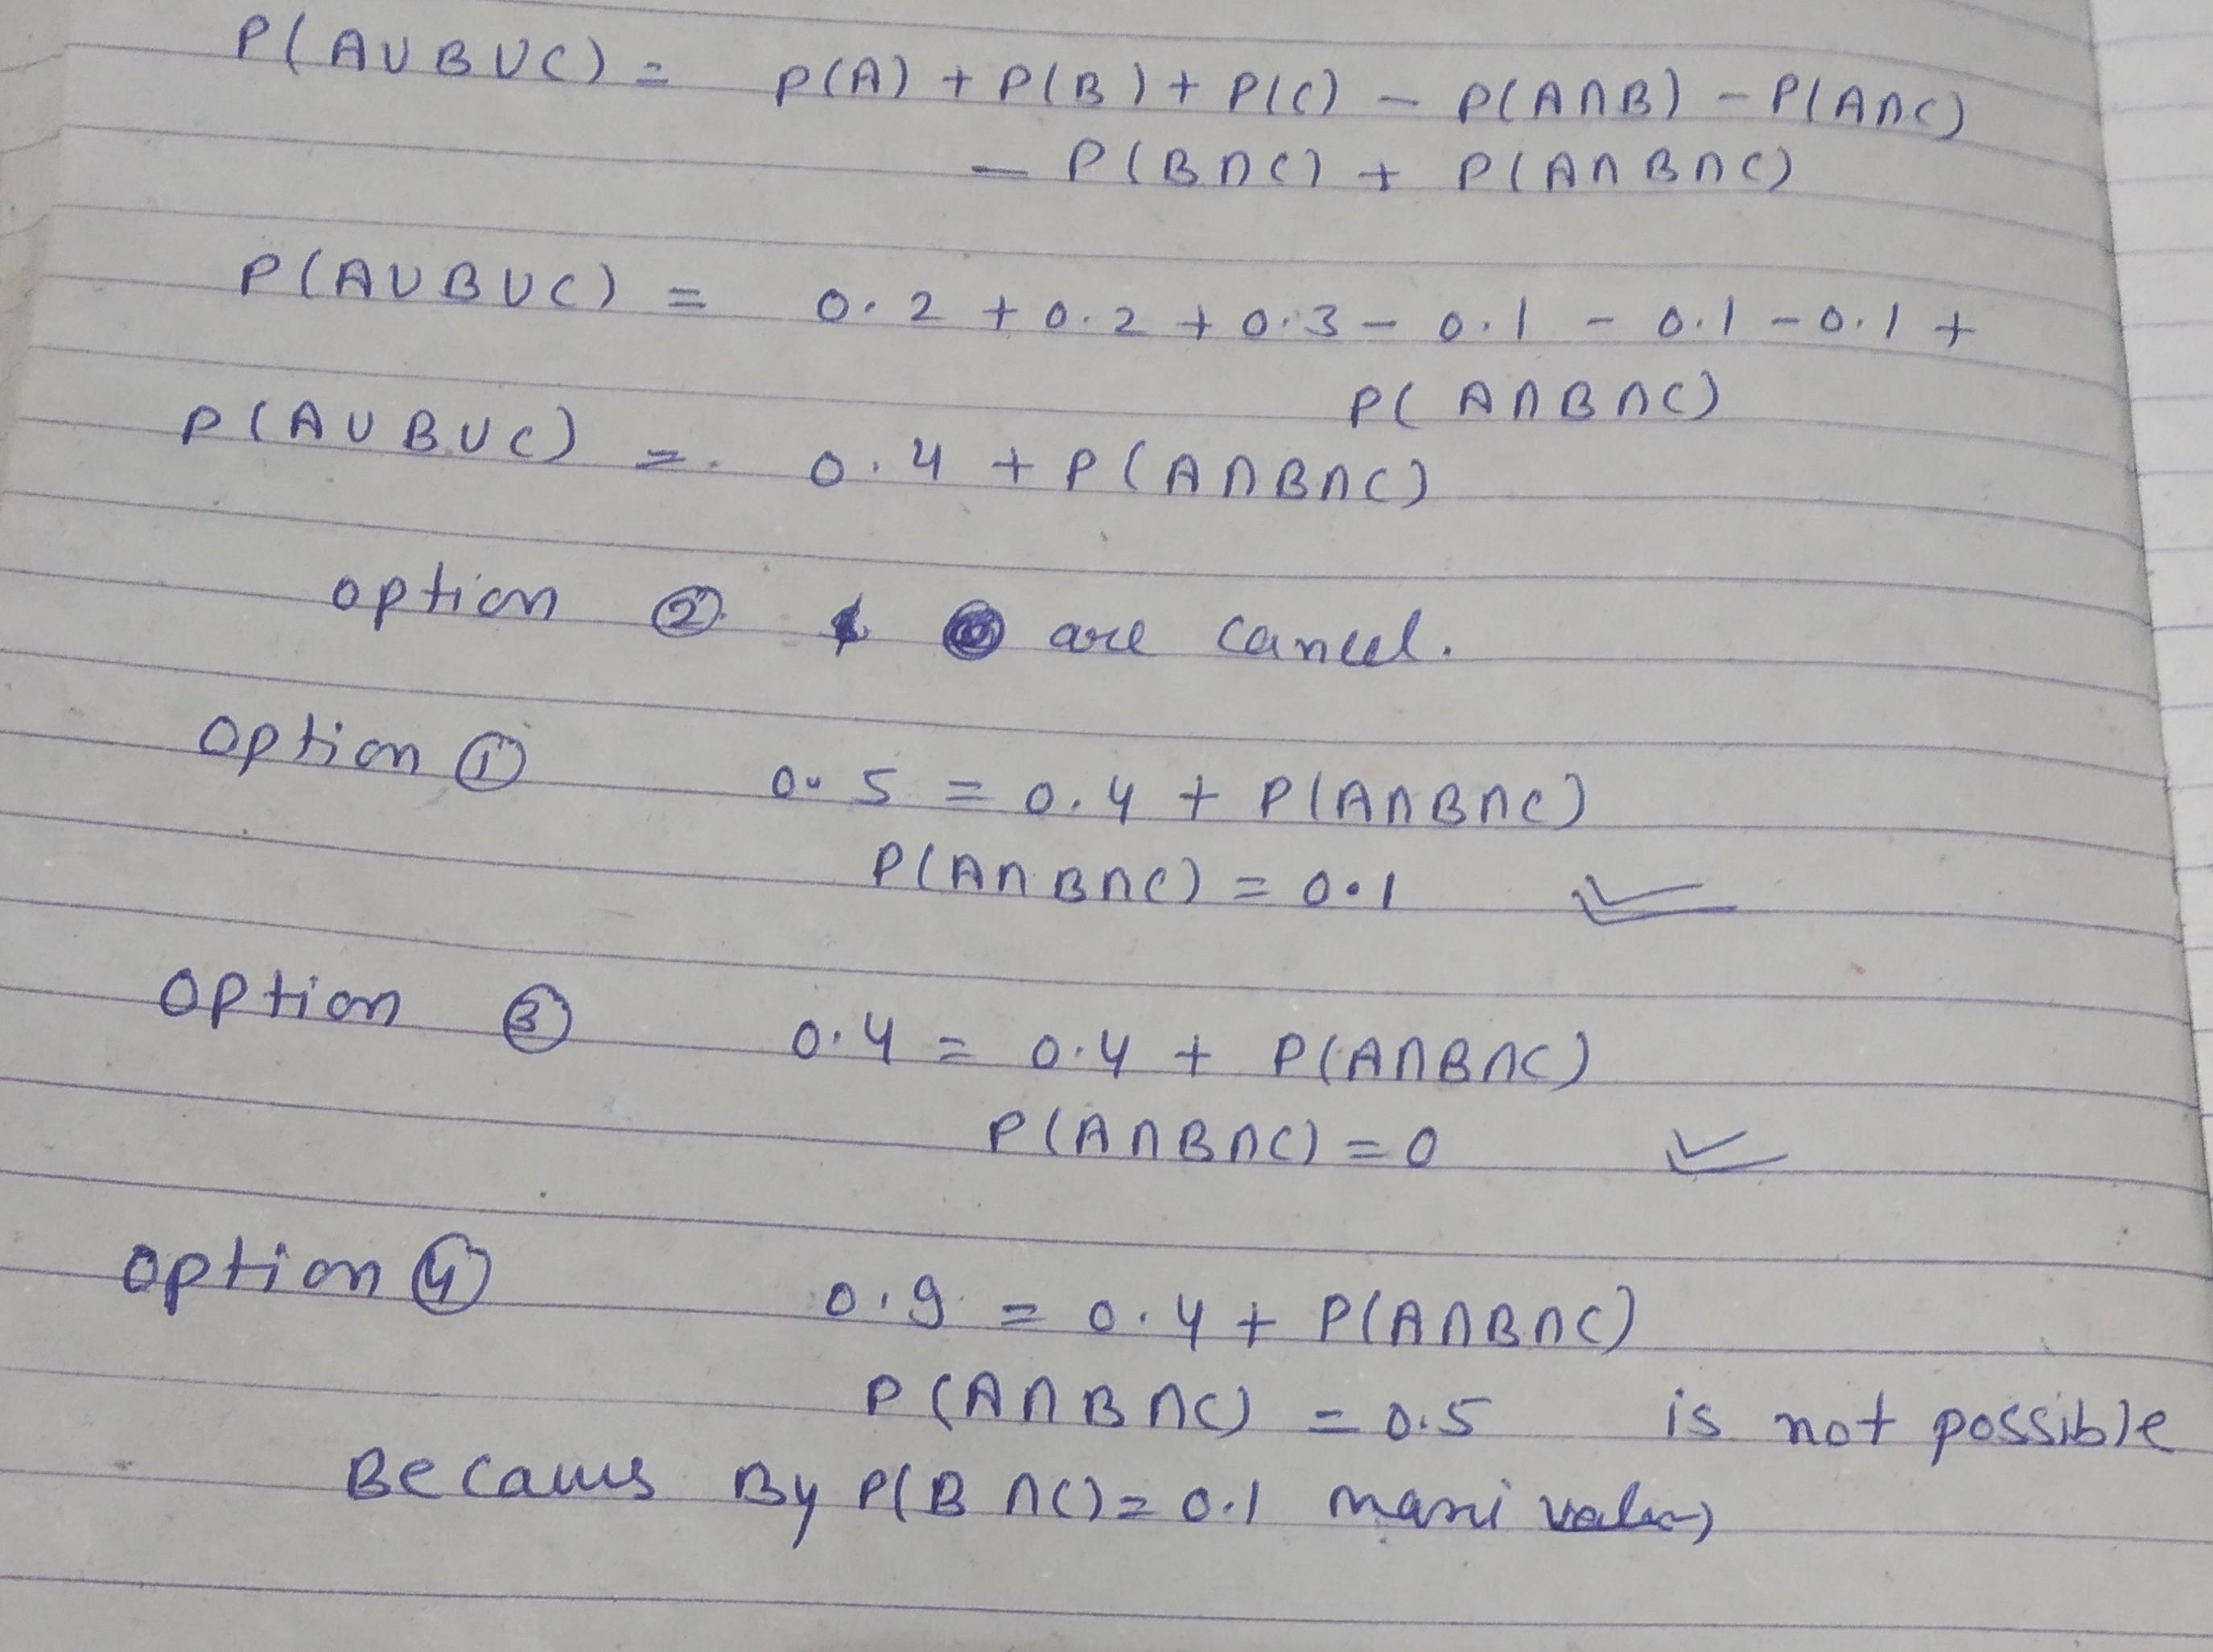 P(A∪B∪C) = P(A) + P(B) + P(C) - P(A∩B) - P(A∩C)
- P(B∩C) + P(A∩B∩C)
P(A∪B∪C) = 0.2 + 0.2 + 0.3 - 0.1 - 0.1 - 0.1 +
P(A∩B∩C)
P(A∪B∪C) = 0.4 + P(A∩B∩C)
option ② are cancel.
option ① 0.5 = 0.4 + P(A∩B∩C)
P(A∩B∩C) = 0.1 ✓
option ③ 0.4 = 0.4 + P(A∩B∩C)
P(A∩B∩C) = 0 ✓
option ④ 0.9 = 0.4 + P(A∩B∩C)
P(A∩B∩C) = 0.5 is not possible
Becaus By P(B∩C) = 0.1 maxi